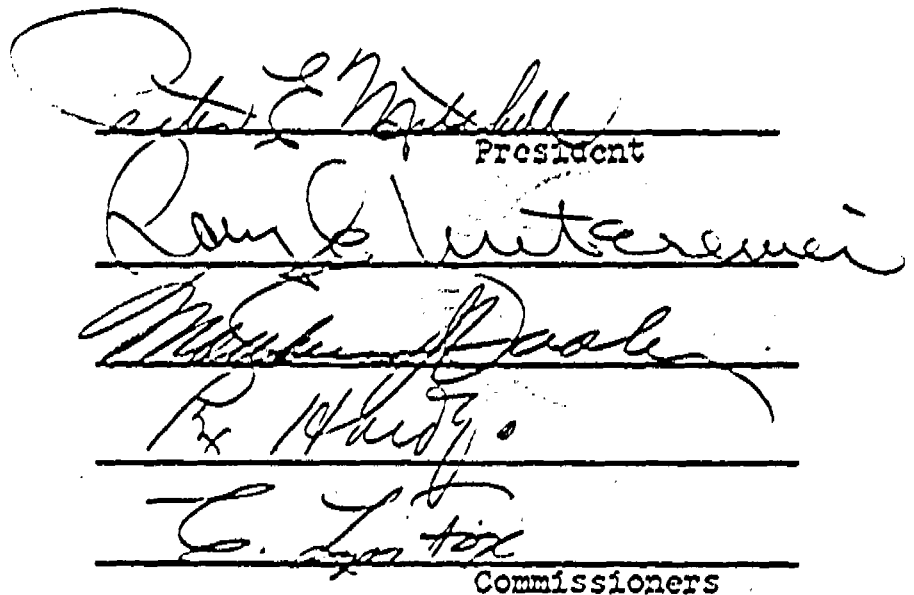 Peter E Mitchell
President
Ray E. Untereiner
Matthew J Dooley
Rex Hardy
C. Lyn Fox
Commissioners